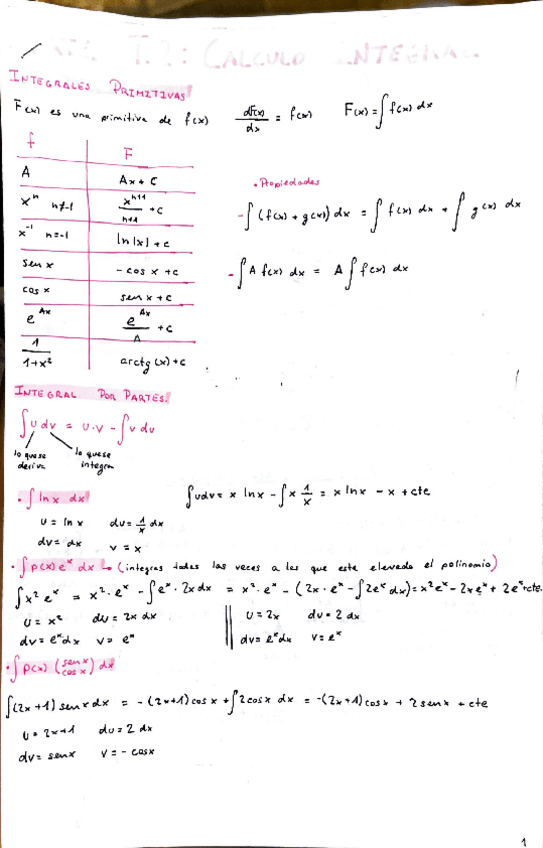 T.2: CALCULO INTEGRAL
INTEGRALES PRIMITIVAS
F(x) es una primitiva de f(x) dF(x)/dx = f(x) F(x) = ∫ f(x) dx
f F
A Ax + C
xⁿ n≠-1 xⁿ⁺¹/n+1 + c
x⁻¹ n=-1 ln|x| + c
sen x - cos x + c
cos x sen x + c
e^Ax e^Ax/A + c
1/1+x² arctg (x) + c
• Propiedades
- ∫ (f(x) + g(x)) dx = ∫ f(x) dx + ∫ g(x) dx
- ∫ A f(x) dx = A ∫ f(x) dx
INTEGRAL POR PARTES.
∫ u dv = u·v - ∫ v du
lo que se deriva
lo que se integra
• ∫ ln x dx ∫ u dv = x lnx - ∫ x 1/x = x lnx - x + cte
u = ln x du = 1/x dx
dv = dx v = x
• ∫ p(x) eˣ dx ↳ (integras todas las veces a las que este elevado el polinomio)
∫ x² eˣ = x²·eˣ - ∫ eˣ·2x dx = x²·eˣ - (2x·eˣ - ∫ 2eˣ dx) = x²eˣ - 2xeˣ + 2eˣ + cte.
u = x² du = 2x dx || u = 2x du = 2 dx
dv = eˣdx v = eˣ || dv = eˣdx v = eˣ
• ∫ p(x) (sen x / cos x) dx
∫ (2x+1) sen x dx = - (2x+1) cos x + ∫ 2cos x dx = -(2x+1) cos x + 2 sen x + cte
u = 2x+1 du = 2 dx
dv = sen x v = - cos x
1